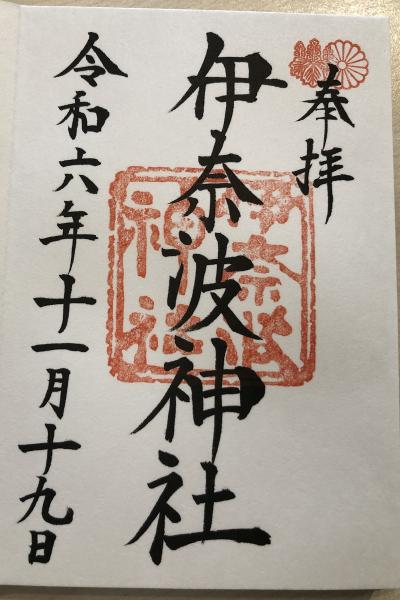 奉拝
伊奈波神社
伊奈波
神社
令和六年十一月十九日